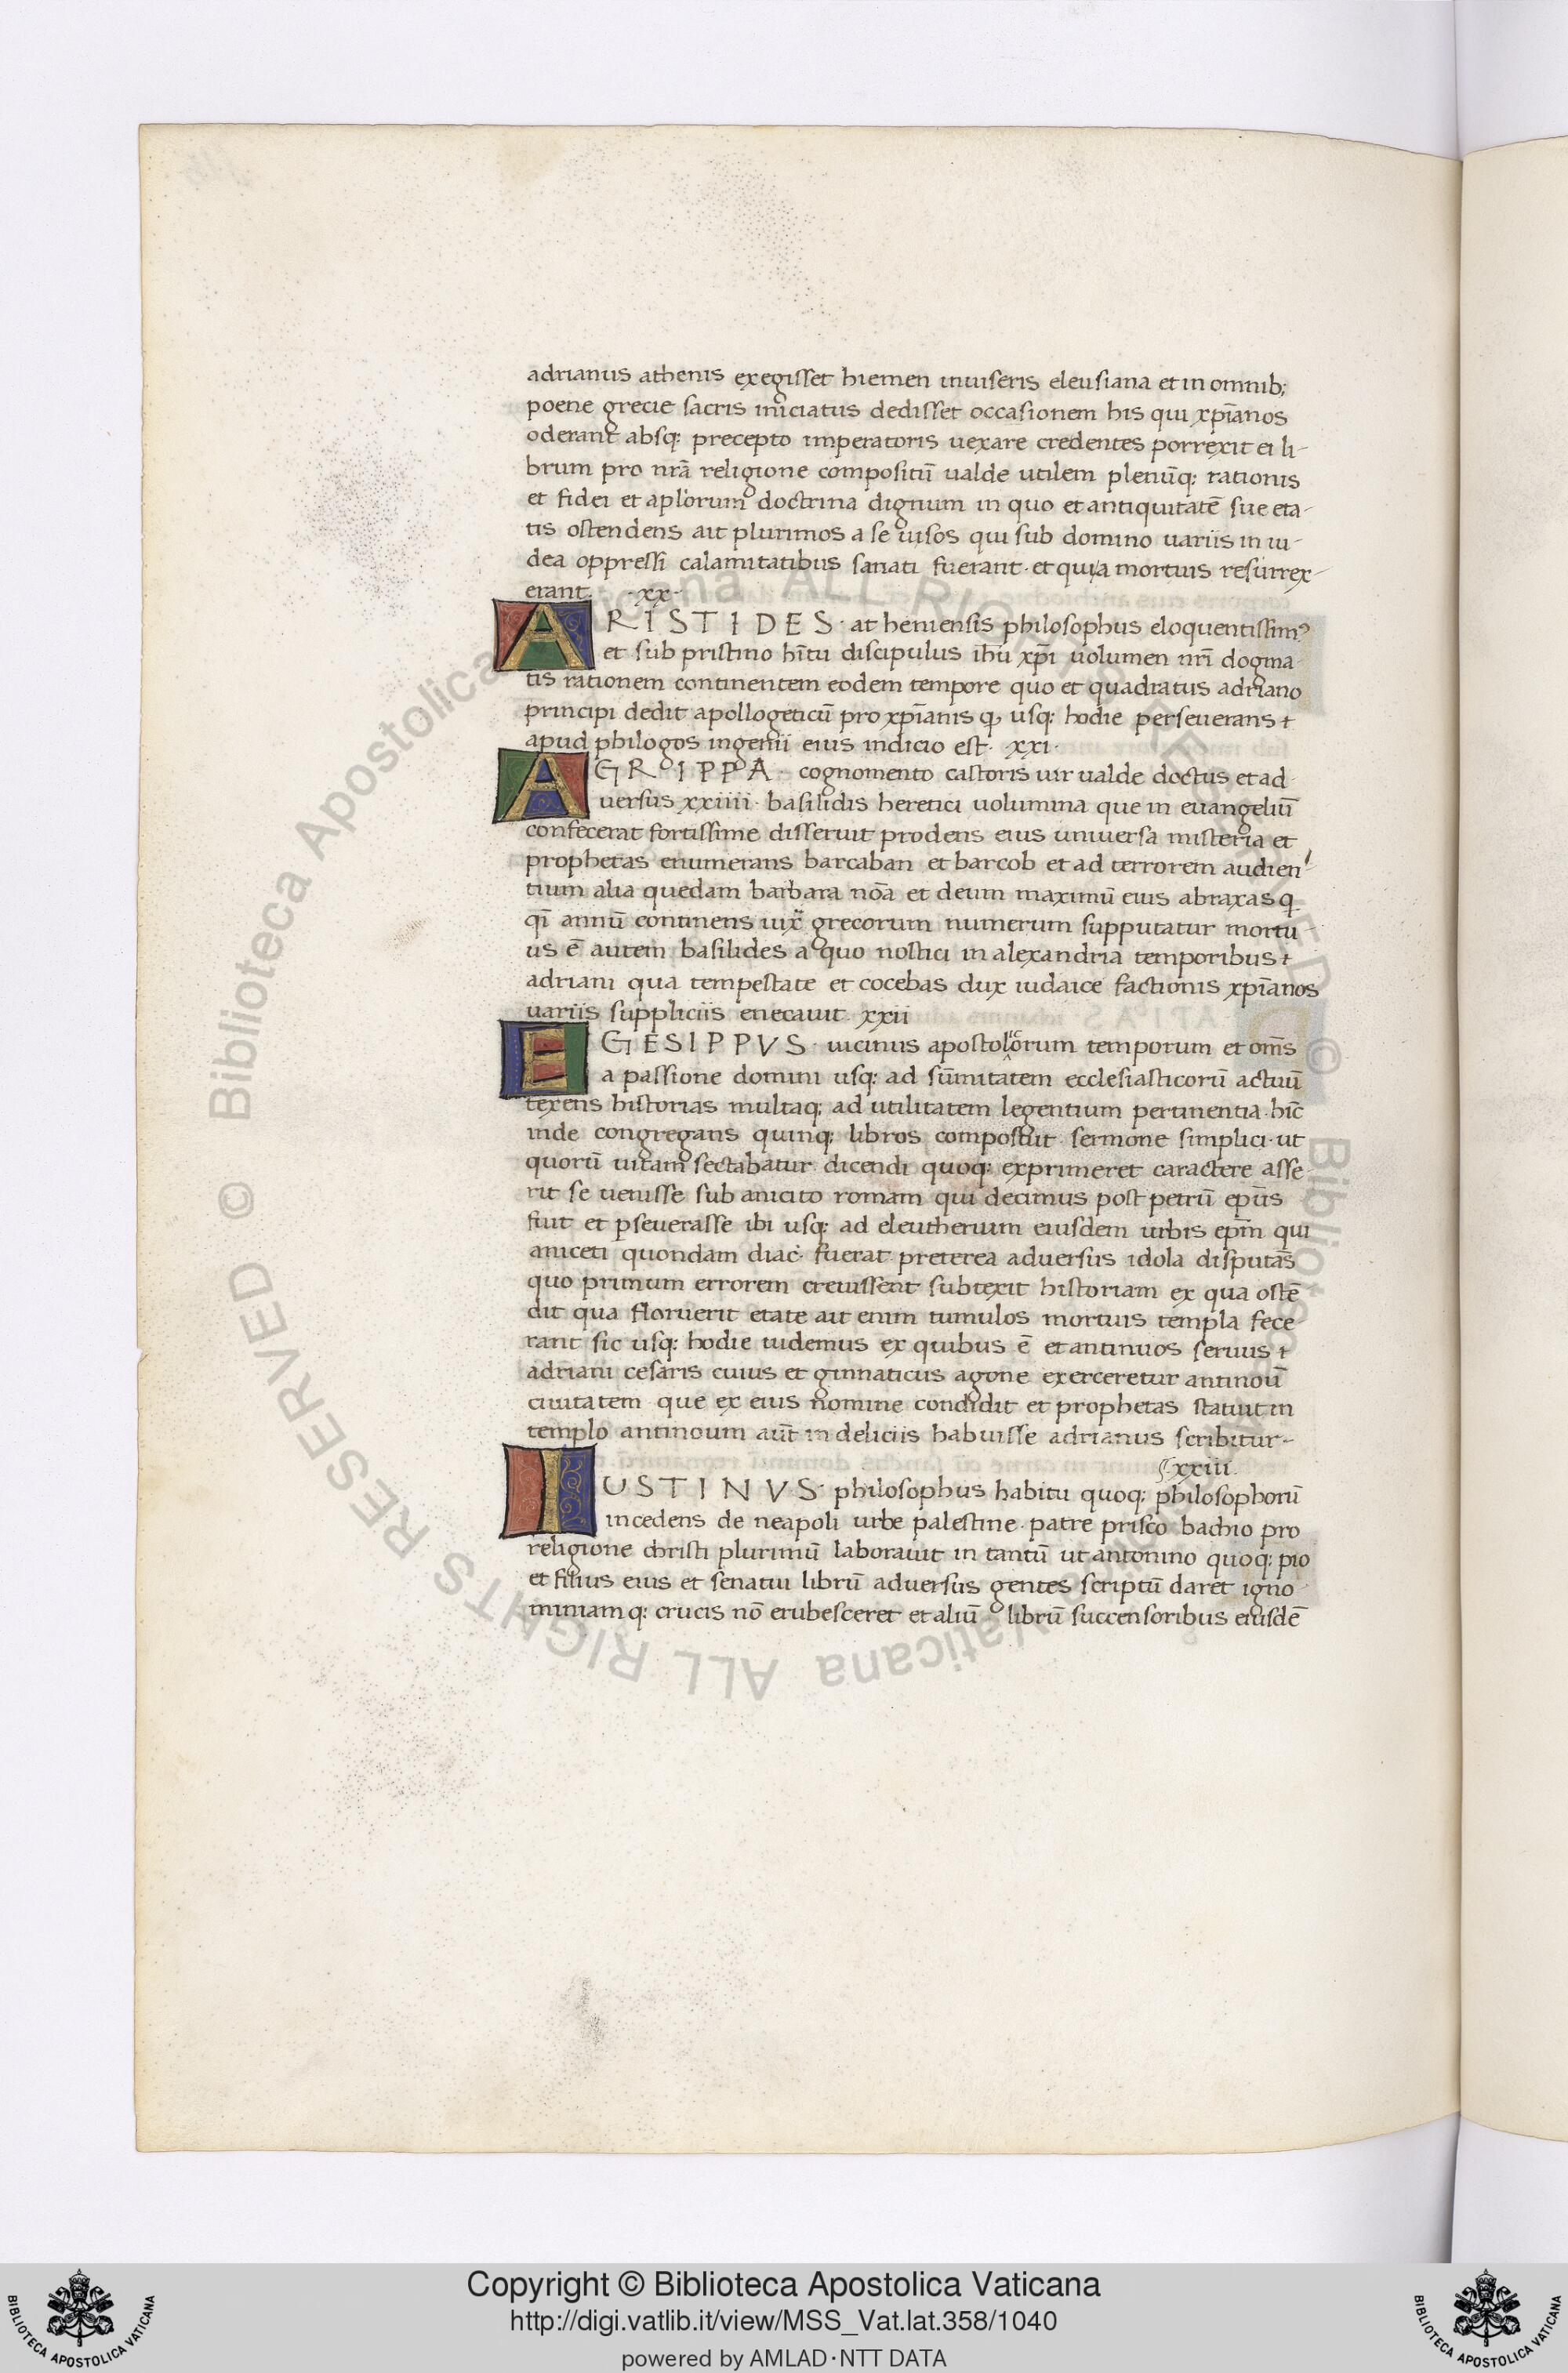 adrianus athenis exegisset hiemen inuiseris eleusiana et in omnib;
poene grecie sacris iniciatus dedisset occasionem his qui xp̄ianos
oderant absq; precepto imperatoris uexare credentes porrexit ei li-
brum pro nr̄a religione compositū ualde utilem plenūq; rationis
et fidei et aplorum doctrina dignum in quo et antiquitatē sue eta-
tis ostendens ait plurimos a se uisos qui sub domino uariis in iu-
dea oppressi calamitatibus sanati fuerant · et quia mortuis resurrex-
erant. -xx-
ARISTIDES · atheniensis philosophus eloquentissimꝰ
et sub pristino hītu discipulus ihū xp̄i uolumen nr̄i dogma
tis rationem continentem eodem tempore quo et quadratus adriano
principi dedit apollogeticū pro xp̄ianis ꝙ usq; hodie perseuerans ÷
apud philogos ingenii eius indicio est · xxi ·
AGRIPPA · cognomento castoris uir ualde doctus et ad
uersus xxiiii · basilidis heretici uolumina que in euangeliū
confecerat fortissime disseruit prodens eius uniuersa misteria et
prophetas enumerans barcaban et barcob et ad terrorem audien
tium alia quedam barbara nōa et deum maximū eius abraxas q
qī annū continens iux̄ grecorum numerum supputatur mortu
us ē autem basilides a quo nostici in alexandria temporibus ÷
adriani qua tempestate et cocebas dux iudaice factionis xp̄ianos
uariis suppliciis enecauit · xxii
EGESIPPVS · uicinus apostolorum temporum et om̄s
a passione domini usq; ad sūmitatem ecclesiasticorū actuū
texens historias multaq; ad utilitatem legentium pertinentia · hīc
inde congregans quinq; libros composuit sermone simplici · ut
quorū uitam sectabatur dicendi quoq; exprimeret caractere asse
rit se uenisse sub anicito romam qui decimus post petrū ep̄us
fuit et pseuerasse ibi usq; ad eleutherium eiusdem urbis ep̄m qui
aniceti quondam diac · fuerat preterea aduersus idola disputās
quo primum errorem creuissent subtexit historiam ex qua ostē
dit qua floruerit etate ait enim tumulos mortuis templa fece
rant sic usq; hodie uidemus ex quibus ē et antinuos seruus ÷
adriani cesaris cuius et ginnaticus agone exerceretur antinoū
ciuitatem que ex eius nomine condidit et prophetas statuit in
templo antinoum aūt in deliciis habuisse adrianus scribitur-
xxiii.
IUSTINVS · philosophus habitu quoq; philosophorū
incedens de neapoli urbe palestine · patre prisco bachio pro
religione christi plurimū laborauit in tantū ut antonino quoq; pio
et filius eius et senatui librū aduersus gentes scriptū daret igno
miniamq; crucis nō erubesceret et aliū librū succensoribus eiusdē
Copyright © Biblioteca Apostolica Vaticana
http://digi.vatlib.it/view/MSS_Vat.lat.358/1040
powered by AMLAD·NTT DATA
BIBLIOTECA APOSTOLICA VATICANA
BIBLIOTECA APOSTOLICA VATICANA
© Biblioteca Apostolica Vaticana ALL RIGHTS RESERVED